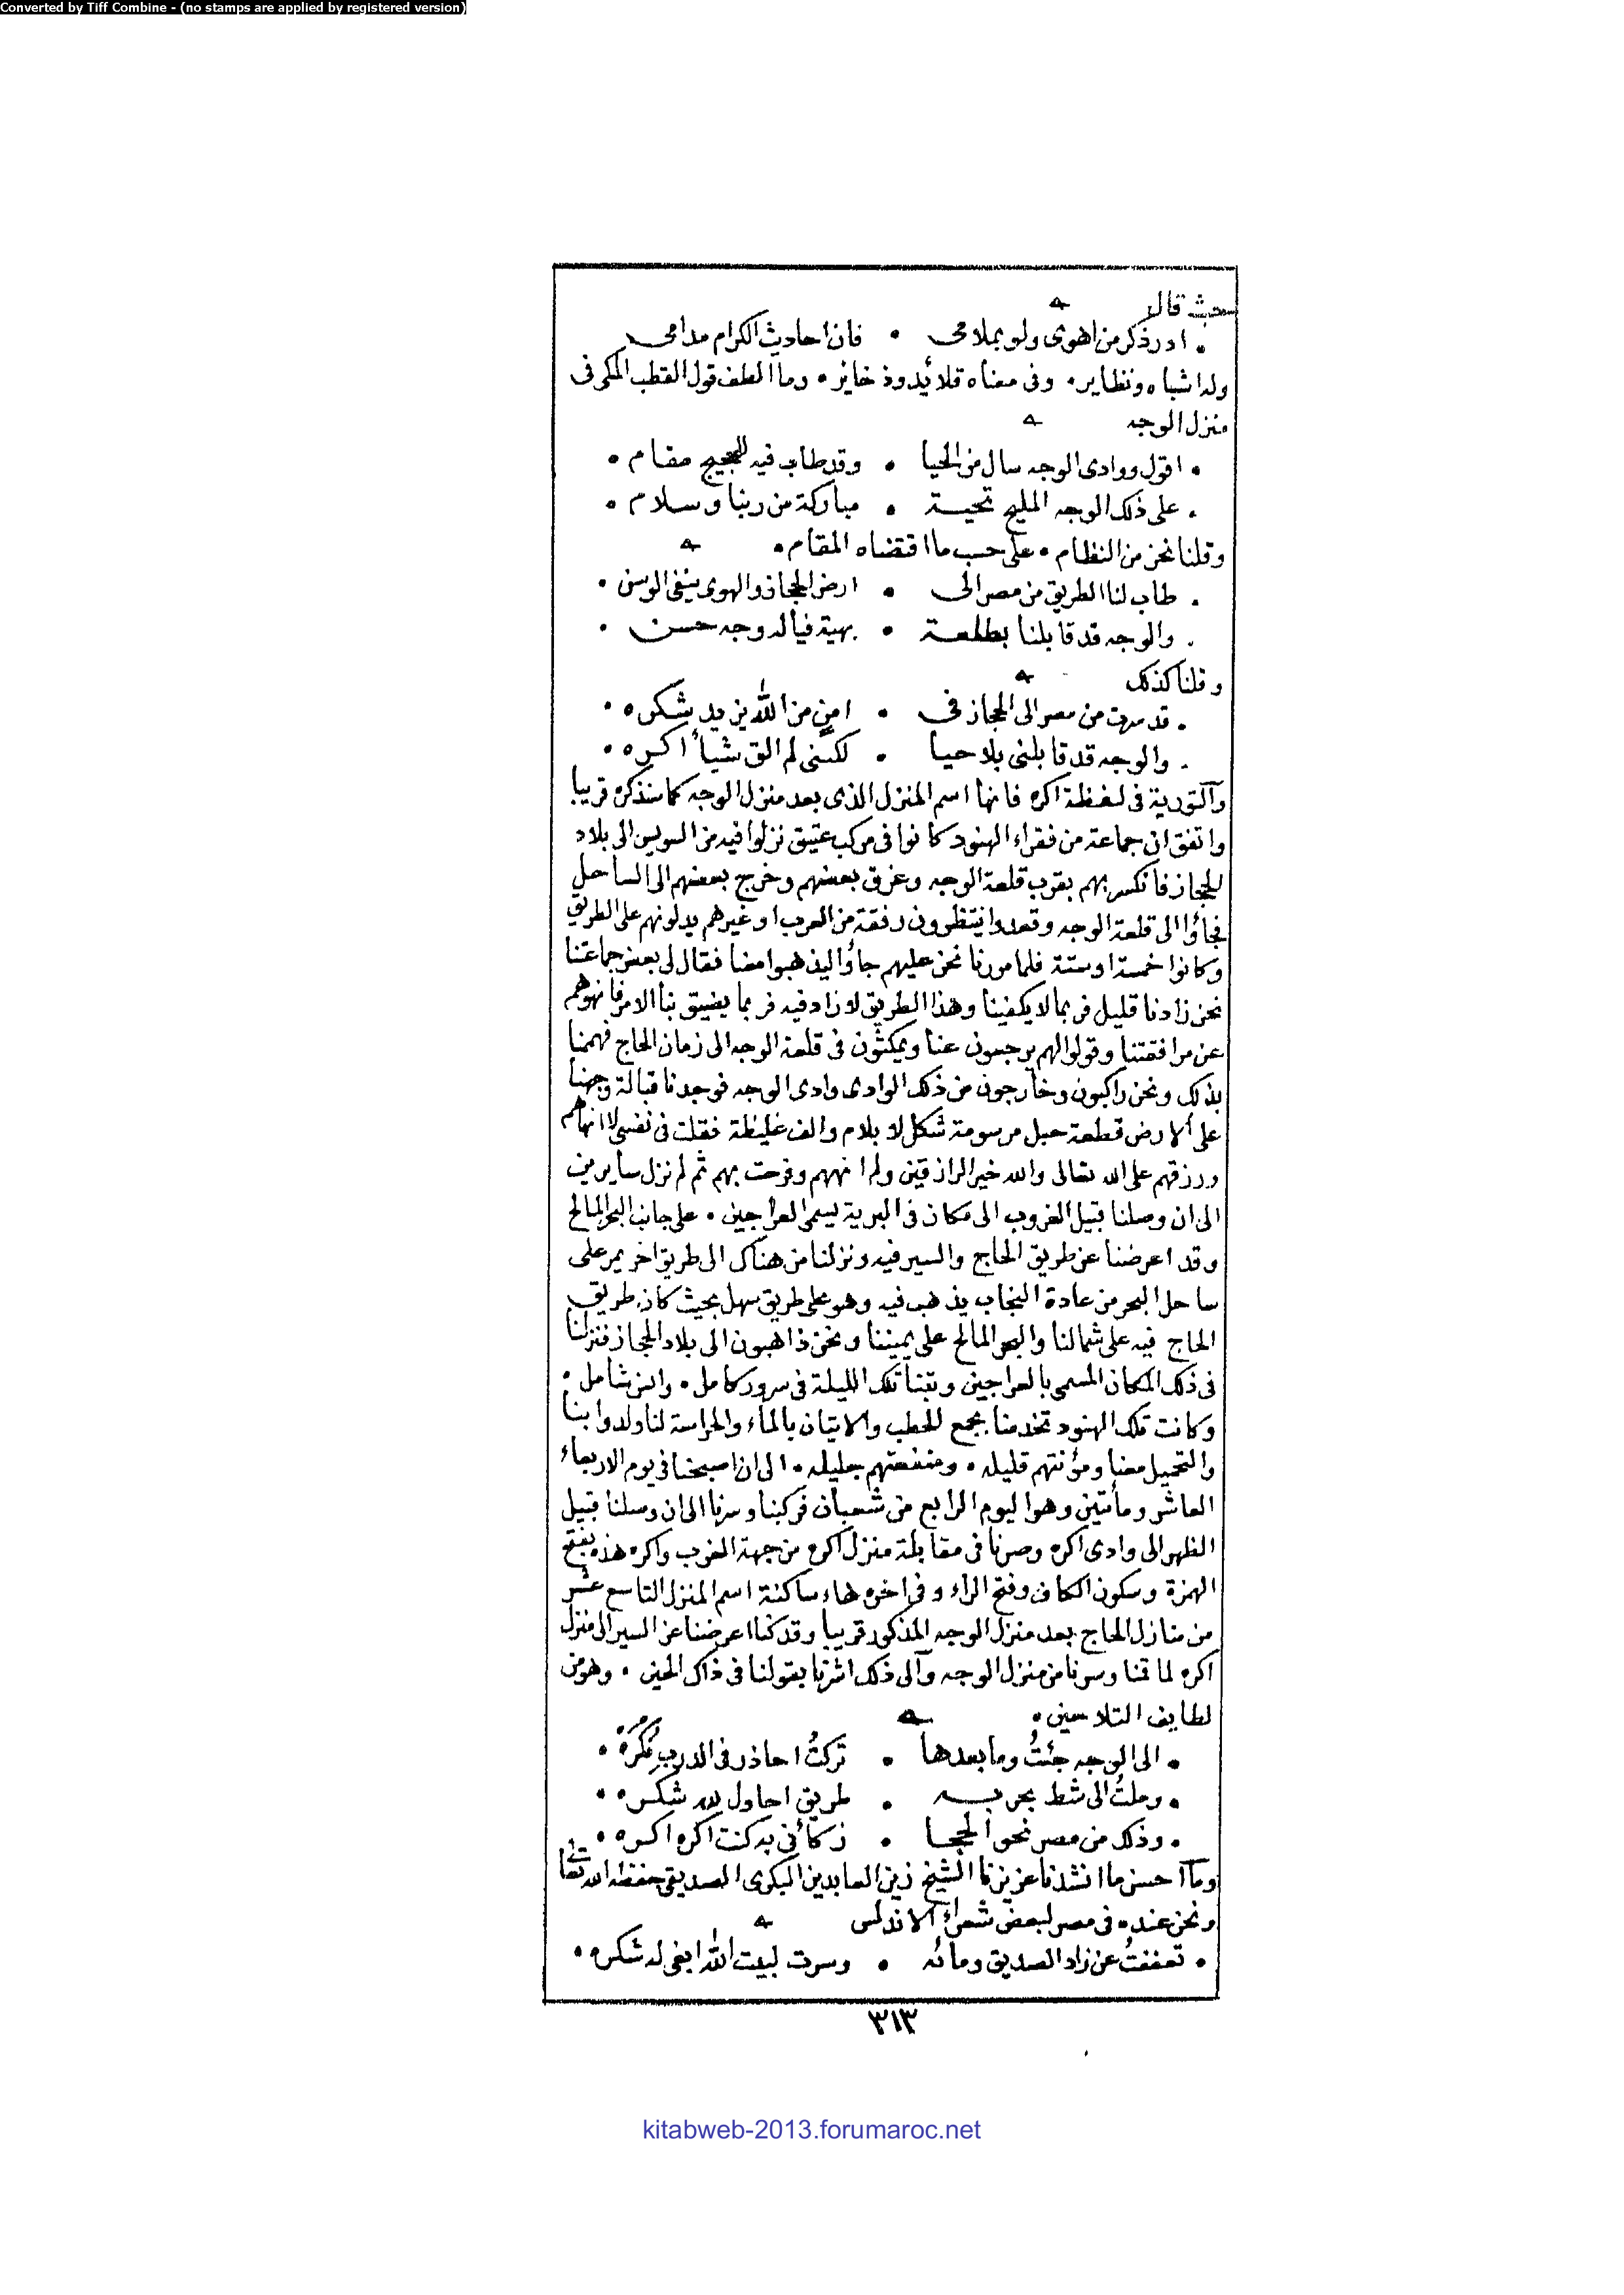 Converted by Tiff Combine - (no stamps are applied by registered version)
حيث قال
• ادر ذكر من اهوى ولو بملامي • فان احاديث الكرام مدامي
وله اشباه ونظاير • وفي معناه قلائد وذخاير • وما الطف قول القطب المكي في
منزل الوجه
• اقول ووادى الوجه سال من الحيا • وقد طاب فيه للحجيج مقام •
• على ذلك الوجه المليح تحية • مباركة من ربنا وسلام •
وقلنا نحن من النظام • على حسب ما اقتضاه المقام •
• طاب لنا الطريق من مصر الى • ارض الحجاز والهوى ينفى الوسن •
• والوجه قد قابلنا بطلعة • بهية فيا له وجه حسن •
وقلنا كذلك
• قد سرت من مصر الى الحجاز في • امن من الله يزيد شكره •
• والوجه قد قابلنى بلا حيا • لكننى لم الق شيأ اكره •
والتورية في لفظة اكره فانها اسم المنزل الذى بعد منزل الوجه كما سنذكره قريبا
واتفق ان جماعة من فقراء الهنود كانوا في مركب عتيق نزلوا فيه من السويس الى بلاد
الحجاز فانكسر بهم بقرب قلعة الوجه وغرق بعضهم وخرج بعضهم الى الساحل
فجاؤا الى قلعة الوجه وقعدوا ينتظرون رفقة من العرب او غيرهم يدلونهم على الطريق
وكانوا خمسة او ستة فلما مررنا نحن عليهم جاؤا ليذهبوا معنا فقال لى بعض جماعتنا
نحن زادنا قليل فربما لا يكفينا وهذا الطريق لا زاد فيه فربما يضيق بنا الامر فانهوهم
عن مرافقتنا وقولوا لهم يرجعون عنا ويمكثون في قلعة الوجه الى زمان الحاج فهممنا
بذلك ونحن راكبون وخارجون من ذلك الوادى وادى الوجه فوجدنا قبالة وجهنا
على الارض قطعة حبل مرسومة شكل لا بلام والف غليظة فقلت في نفسى لا انهاهم
ورزقهم على الله تعالى والله خير الرازقين ولم انههم وفرحت بهم ثم لم نزل سايرين
الى ان وصلنا قبيل الغروب الى مكان في البرية يسمى العراجين • على جانب البحر المالح
وقد اعرضنا عن طريق الحاج والسير فيه ونزلنا من هناك الى طريق اخر يمر على
ساحل البحر من عادة النجاب يذهب فيه وهو على طريق سهل بحيث كان طريق
الحاج فيه على شمالنا والبحر المالح على يميننا ونحن ذاهبون الى بلاد الحجاز فنزلنا
في ذلك المكان المسمى بالعراجين وبتنا تلك الليلة في سرور كامل • وانس شامل •
وكانت تلك الهنود تخدمنا بجمع الحطب والاتيان بالماء والحراسة لنا ولدوابنا
والتحميل معنا ومؤنتهم قليله • ومنفعتهم جليله • الى ان اصبحنا في يوم الاربعاء
العاشر ومأتين وهو اليوم الرابع من شعبان فركبنا وسرنا الى ان وصلنا قبيل
الظهر الى وادى اكره وصرنا في مقابلة منزل اكره من جهة الغرب واكره هذه بفتح
الهمزة وسكون الكاف وفتح الراء وفي اخره هاء ساكنة اسم المنزل التاسع عشر
من منازل الحاج بعد منزل الوجه المذكور قريبا وقد كنا اعرضنا عن السير الى منزل
اكره لما قمنا وسرنا من منزل الوجه والى ذلك اشرنا بقولنا في ذاك الحين • وهو من
لطايف التلاحين •
• الى الوجه جئتُ وما بعدها • تركتُ احاذر في الدرب مكره •
• وملتُ الى شط بحر به • طريق احاول لله شكره •
• وذلك من مصر نحو الحجا • ز كأني به كنت اكره اكره •
وما احسن ما انشدنا عزيزنا الشيخ زين العابدين البكرى الصديقي حفظه الله تعالى
ونحن عنده في مصر لبعض شعراء الاندلس
• تعففتُ عن زاد الصديق ومائه • وسرت لبيت الله ابغى له شكره •
٣١٣
kitabweb-2013.forumaroc.net